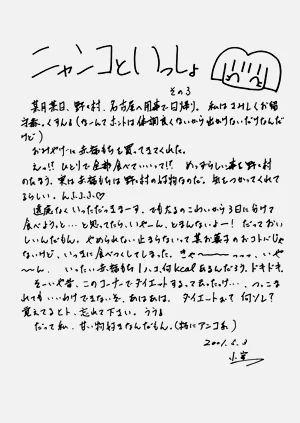 ニャンコといっしょ
その3
某月某日、野々村、名古屋へ用事で日帰り。私はさみしくお留
守番。くすん(なーんてホントは体調良くないから出かけないだけなんだ
けど)
おみやげに赤福もちを買ってきてくれた。
えっ!!ひとりで全部食べていいって!?めっずらしい事を野々村
のたまう。実は赤福もちは野々村の好物なのだ。気をつかってくれて
るらしい。んふふふ♡
遠慮なくいっただっきまーす。でも太るのこわいから3日に分けて
食べようっと…と思ってたら、いやーん、とまんないよー!だっておい
しいんだもん。やめられない止まらないって某お菓子のおコトバじゃ
ないけど、いっきに食べつくしてしまった。きゃ〜〜〜っっっ、いや
〜ん、いったい赤福もち1ハコ、何kcalあるんだろう、ドキドキ。
そーいや昔、このコーナーでダイエットするって言ったっけ…、つっこま
れてもいいわけできないぞ、あはあは。ダイエットって何ソレ?
覚えてるヒト、忘れて下さい。ううう
だって私、甘い物好きなんだもん。(特にアンコ系)
2001.6.3